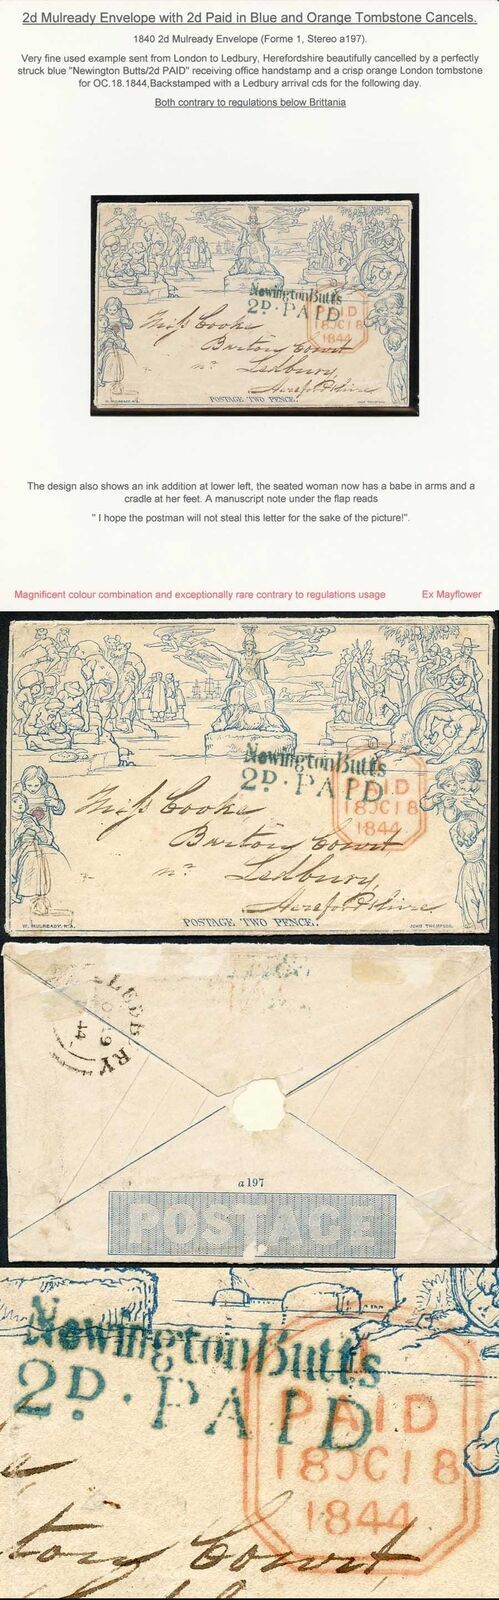 2d Mulready Envelope with 2d Paid in Blue and Orange Tombstone Cancels.
1840 2d Mulready Envelope (Forme 1, Stereo a197).
Very fine used example sent from London to Ledbury, Herefordshire beautifully cancelled by a perfectly
struck blue "Newington Butts/2d PAID" receiving office handstamp and a crisp orange London tombstone
for OC.18.1844,Backstamped with a Ledbury arrival cds for the following day.
Both contrary to regulations below Brittania
Newington Butts
2D. PAID
PAID
18OC18
1844
Miss Cooke
Barton Court
nr. Ledbury,
Herefordshire
POSTAGE TWO PENCE.
W. MULREADY, R.A.
JOHN THOMPSON.
The design also shows an ink addition at lower left, the seated woman now has a babe in arms and a
cradle at her feet. A manuscript note under the flap reads
" I hope the postman will not steal this letter for the sake of the picture!".
Magnificent colour combination and exceptionally rare contrary to regulations usage
Ex Mayflower
Newington Butts
2D. PAID
PAID
18OC18
1844
Miss Cooke
Barton Court
nr. Ledbury,
Herefordshire
POSTAGE TWO PENCE.
W. MULREADY, R.A.
JOHN THOMPSON.
LEDBURY
OC 19
44
a 197
POSTAGE
Newington Butts
2D. PAID
PAID
18OC18
1844
Court